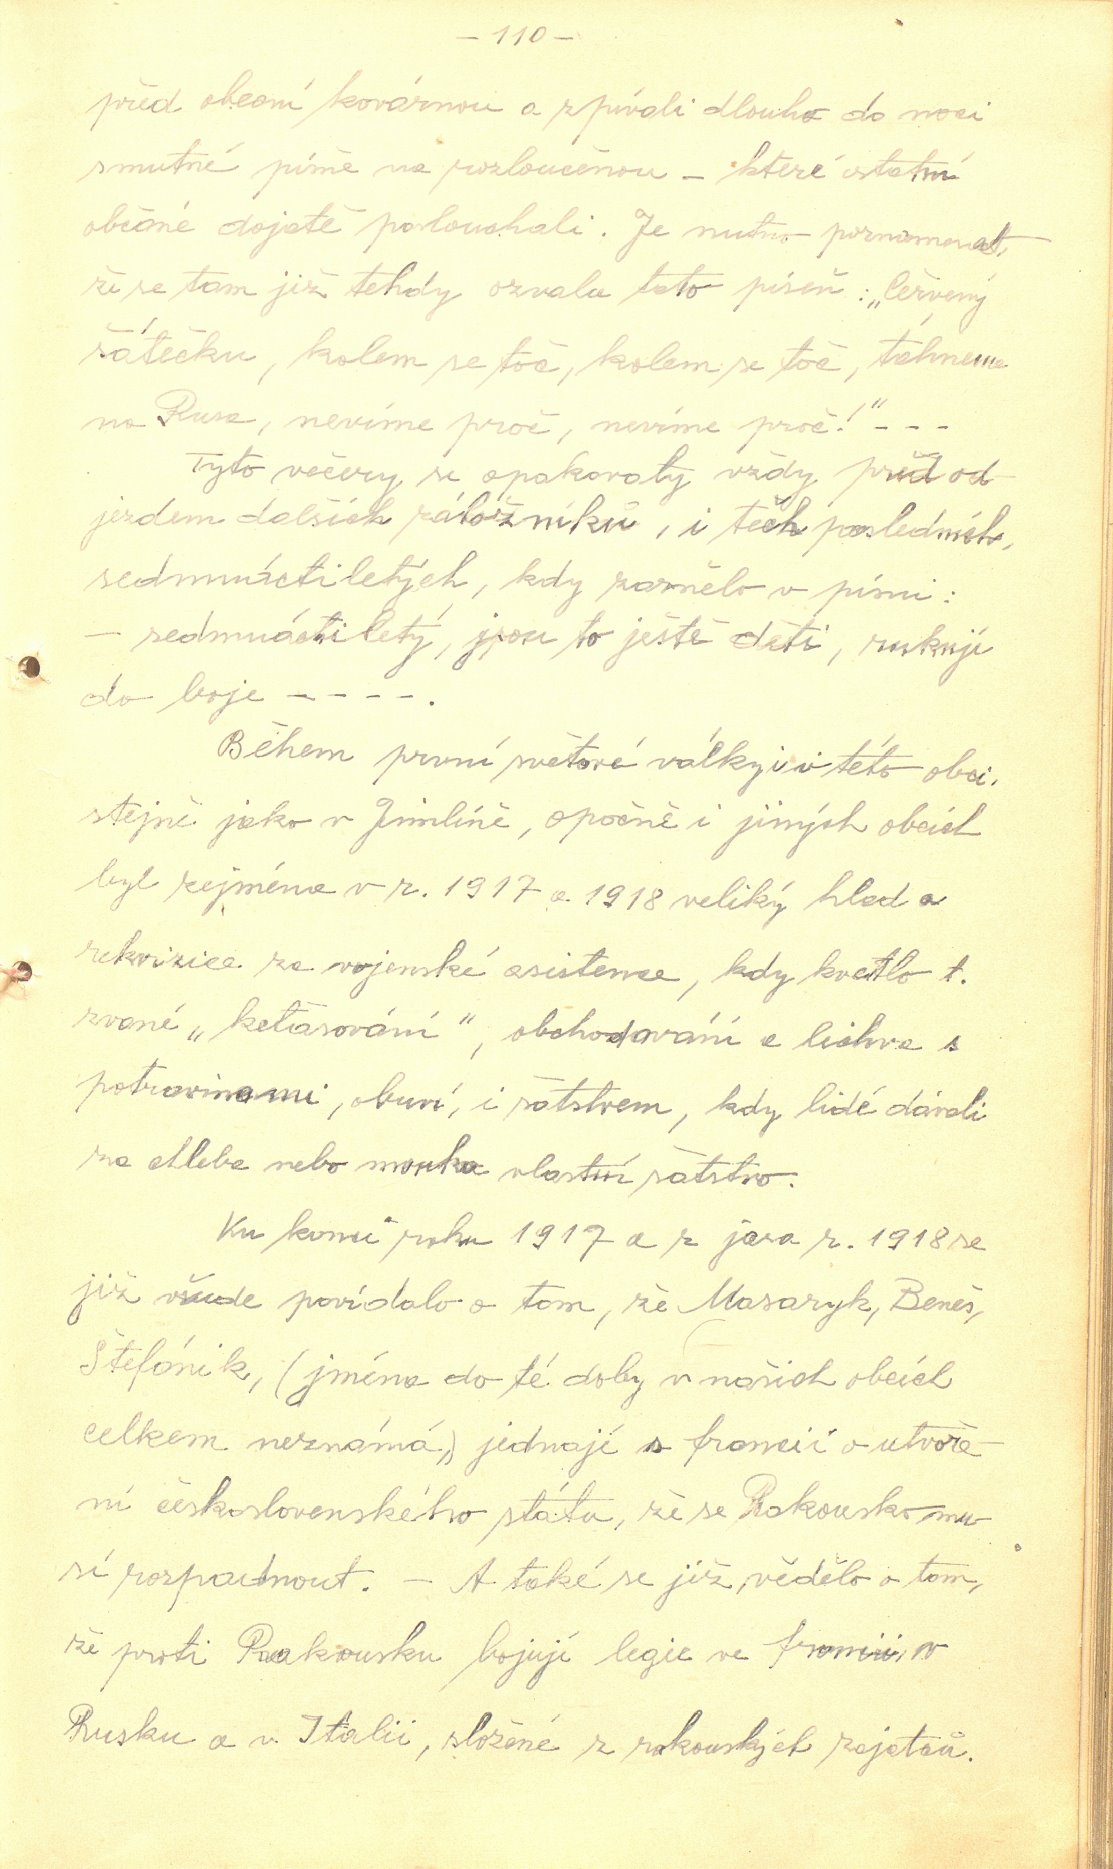 - 110 -
před obecní kovárnou a zpívali dlouho do noci
smutné písně na rozloučenou - které ostatní
občané dojatě poslouchali. Je nutno poznamenat,
že se tam již tehdy ozvala tato píseň: „Červený
šátečku, kolem se toč, kolem se toč, táhneme
na Rusa, nevíme proč, nevíme proč!" - - -
Tyto večery se opakovaly vždy před od-
jezdem dalších záložníků, i těch posledních,
sedmnáctiletých, kdy zaznělo v písni:
- sedmnáctiletý, jsou to ještě děti, rukují
do boje - - - - .
Během první světové války i v této obci,
stejně jako v Jimlíně, Opočně i jiných obcích
byl zejména v r. 1917 a 1918 veliký hlad a
rekvizice za vojenské asistence, kdy kvetlo t.
zvané „keťasování", obchodování a lichva s
potravinami, obuví, i šatstvem, kdy lidé dávali
za chleba nebo mouka vlastní šatstvo.
Ku konci roku 1917 a z jara r. 1918 se
již všude povídalo o tom, že Masaryk, Beneš,
Štefánik, (jména do té doby v našich obcích
celkem neznámá,) jednají s francií o utvoře-
ní československého státu, že se Rakousko mu-
sí rozpadnout. - A také se již vědělo o tom,
že proti Rakousku bojují legie ve francii, v
Rusku a v Italii, složené z rakouských zajatců.